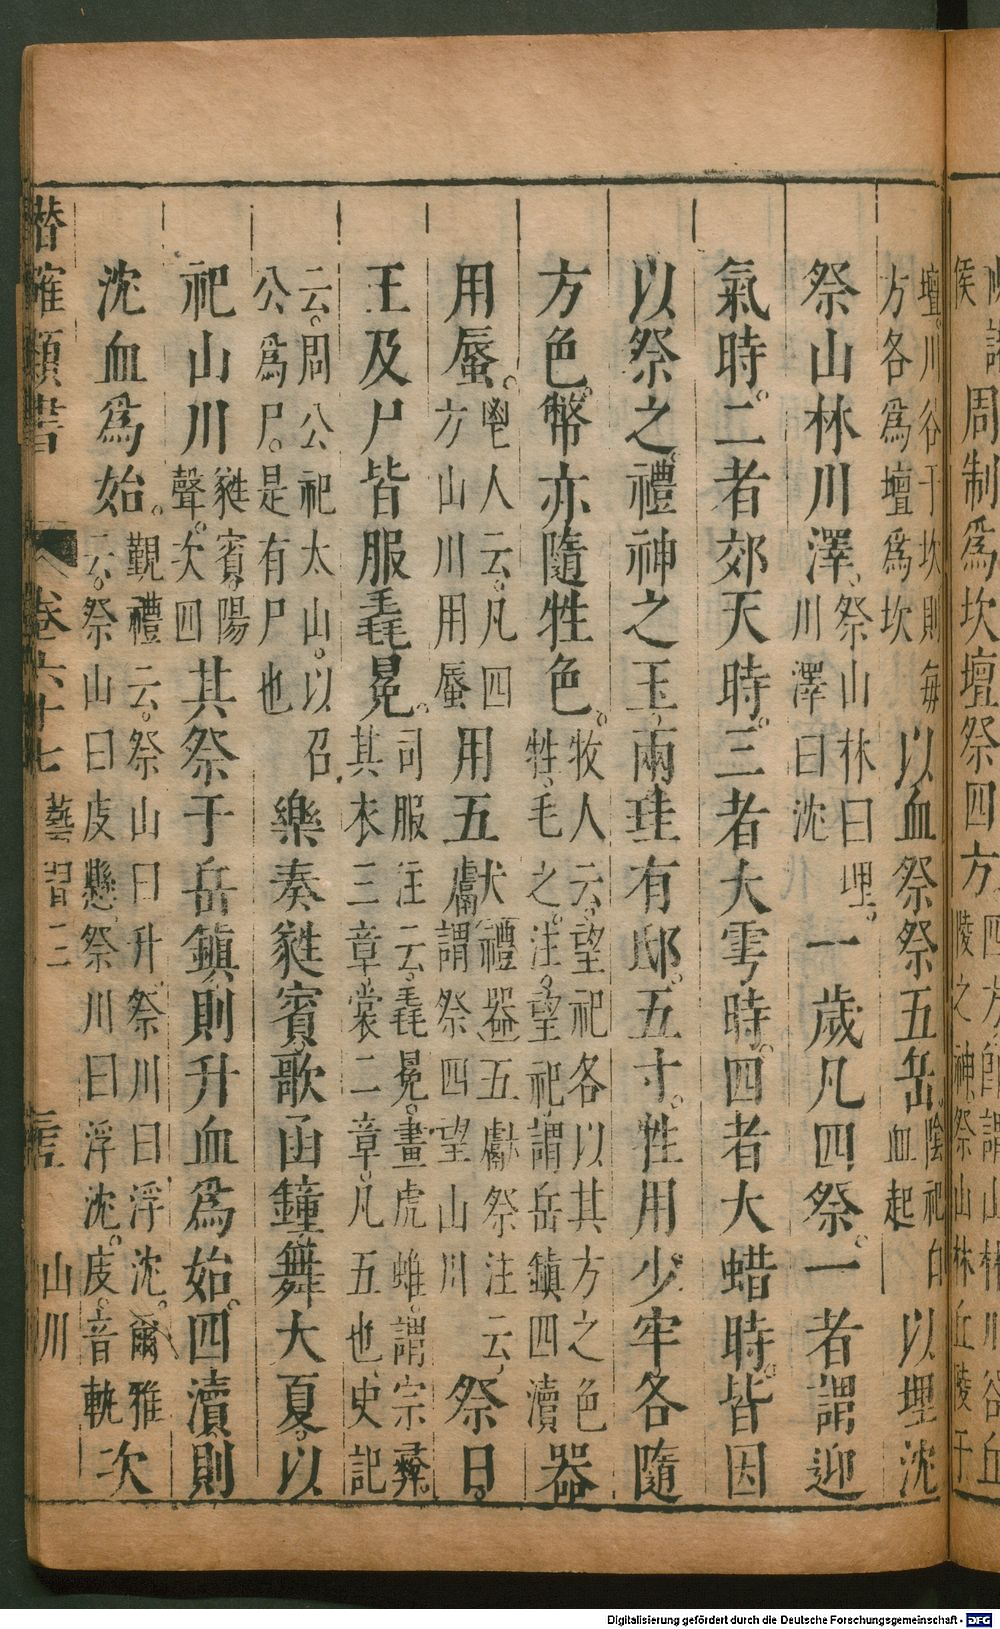 周制爲坎壇祭四方
壇川谷于坎則每
方各爲壇爲坎
以血祭祭五岳
陰祀自
血起
以埋沈
祭山林川澤
祭山林曰埋
川澤曰沈
一歲凡四祭一者謂迎
氣時二者郊天時三者大雩時四者大蜡時皆因
以祭之禮神之玉兩珪有邸五寸牲用少牢各隨
方色幣亦隨牲色
牧人云望祀各以其方之色
牲毛之注望祀謂岳鎮四瀆
器
用蜃
鬯人云凡四
方山川用蜃
用五獻
禮器五獻祭注云
謂祭四望山川
祭日
王及尸皆服毳冕
司服注云毳冕畫虎蜼謂宗彝
其衣三章裳二章凡五也史記
云周公祀太山以召
公爲尸是有尸也
樂奏蕤賓歌函鐘舞大夏以
祀山川
蕤賓陽
聲次四
其祭于岳鎮則升血爲始四瀆則
沈血爲始
覲禮云祭山曰升祭川曰浮沈爾雅
云祭山曰庋懸祭川曰浮沈庋音軌
次
潛確類書 卷六十七 藝習三 山川
Digitalisierung gefördert durch die Deutsche Forschungsgemeinschaft - DFG